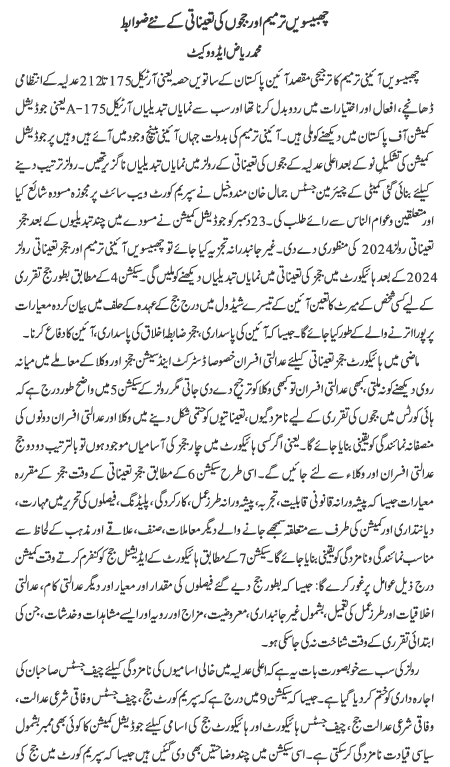 چھبیسویں ترمیم اور ججوں کی تعیناتی کے نئے ضوابط
محمد ریاض ایڈووکیٹ
چھبیسویں آئینی ترمیم کا ترجیحی مقصد آئین پاکستان کے ساتویں حصہ یعنی آرٹیکل 175 تا 212 عدلیہ کے انتظامی
ڈھانچے، افعال اور اختیارات میں ردوبدل کرنا تھا اور سب سے نمایاں تبدیلیاں آرٹیکل 175-A یعنی جوڈیشل
کمیشن آف پاکستان میں دیکھنے کو ملی ہیں۔ آئینی ترمیم کی بدولت جہاں آئینی بینچ وجود میں آئے ہیں وہیں پر جوڈیشل
کمیشن کی تشکیل نو کے بعد اعلی عدلیہ کے ججوں کی تعیناتی کے رولز میں نمایاں تبدیلیاں ناگزیر تھیں۔ رولز ترتیب دینے
کیلئے بنائی گئی کمیٹی کے چیئرمین جسٹس جمال خان مندوخیل نے سپریم کورٹ ویب سائٹ پر مجوزہ مسودہ شائع کیا
اور متعلقین وعوام الناس سے رائے طلب کی۔ 23 دسمبر کو جوڈیشل کمیشن نے مسودے میں چند تبدیلیوں کے بعد ججز
تعیناتی رولز 2024 کی منظوری دے دی۔ غیر جانبدارانہ تجزیہ کیا جائے تو چھبیسویں آئینی ترمیم اور ججز تعیناتی رولز
2024 کے بعد ہائیکورٹ میں ججز کی تعیناتی میں نمایاں تبدیلیاں دیکھنے کو ملیں گی۔ سیکشن 4 کے مطابق بطور جج تقرری
کے لیے کسی شخص کے میرٹ کا تعین آئین کے تیسرے شیڈول میں درج جج کے عہدہ کے حلف میں بیان کردہ معیارات
پر پورا اترنے والے کے طور کیا جائے گا۔ جیسا کہ آئین کی پاسداری، ججز ضابطہ اخلاق کی پاسداری، آئین کا دفاع کرنا۔
ماضی میں ہائیکورٹ ججز تعیناتی کیلئے عدالتی افسران خصوصا ڈسٹرکٹ اینڈ سیشن ججز اور وکلا کے معاملے میں میانہ
روی دیکھنے کو نہ ملتی، کبھی عدالتی افسران تو کبھی وکلا کو ترجیح دے دی جاتی مگر رولز کے سیکشن 5 میں واضح طور درج ہے کہ
ہائی کورٹس میں ججوں کی تقرری کے لیے نامزدگیوں، تعیناتیوں کو حتمی شکل دینے میں وکلا اور عدالتی افسران دونوں کی
منصفانہ نمائندگی کو یقینی بنایا جائے گا۔ یعنی اگر کسی ہائیکورٹ میں چار ججز کی آسامیاں موجود ہوں تو بالترتیب دو دو جج
عدالتی افسران اور وکلاء سے لئے جائیں گے۔ اسی طرح سیکشن 6 کے مطابق ججز تعیناتی کے وقت ججز کے مقررہ
معیارات جیسا کہ پیشہ ورانہ قانونی قابلیت، تجربہ، پیشہ ورانہ طرز عمل، کارکردگی، پلیڈنگ، فیصلوں کی تحریر میں مہارت،
دیانتداری اور کمیشن کی طرف سے متعلقہ سمجھے جانے والے دیگر معاملات، صنف، علاقے اور مذہب کے لحاظ سے
مناسب نمائندگی و نامزدگی کو یقینی بنایا جائے گا۔ سیکشن 7 کے مطابق ہائیکورٹ کے ایڈیشنل جج کو کنفرم کرتے وقت کمیشن
درج ذیل عوامل پر غور کرے گا: جیسا کہ بطور جج دیے گئے فیصلوں کی مقدار اور معیار اور دیگر عدالتی کام، عدالتی
اخلاقیات اور طرز عمل کی تعمیل، بشمول غیر جانبداری، معروضیت، مزاج اور رویہ اور ایسے مشاہدات وخدشات، جن کی
ابتدائی تقرری کے وقت شناخت نہ کی جاسکی ہو۔
رولز کی سب سے خوبصورت بات یہ ہے کہ اعلی عدلیہ میں خالی اسامیوں کی نامزدگی کیلئے چیف جسٹس صاحبان کی
اجارہ داری کو ختم کردیا گیا ہے۔ جیسا کہ سیکشن 9 میں درج ہے کہ سپریم کورٹ جج، چیف جسٹس وفاقی شرعی عدالت،
وفاقی شرعی عدالت جج، چیف جسٹس ہائیکورٹ اور ہائیکورٹ جج کی اسامی کیلئے جوڈیشل کمیشن کا کوئی بھی ممبر بشمول
سیاسی قیادت نامزدگی کرسکتی ہے۔ اسی سیکشن میں چند وضاحتیں بھی دی گئیں ہیں جیسا کہ سپریم کورٹ میں جج کی